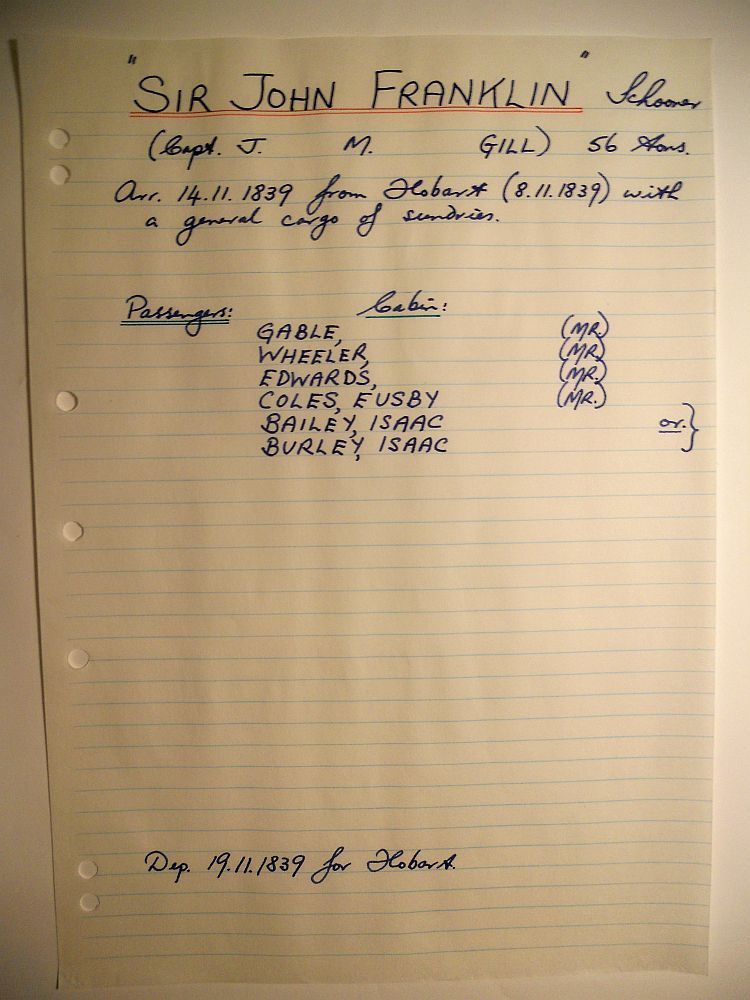 "SIR JOHN FRANKLIN" Schooner
(Capt. J. M. GILL) 56 tons.
Arr. 14.11.1839 from Hobart (8.11.1839) with
a general cargo of sundries.
Passengers: Cabin:
GABLE, (MR.)
WHEELER, (MR.)
EDWARDS, (MR.)
COLES, EUSBY (MR.)
BAILEY, ISAAC or. }
BURLEY, ISAAC
Dep. 19.11.1839 for Hobart.